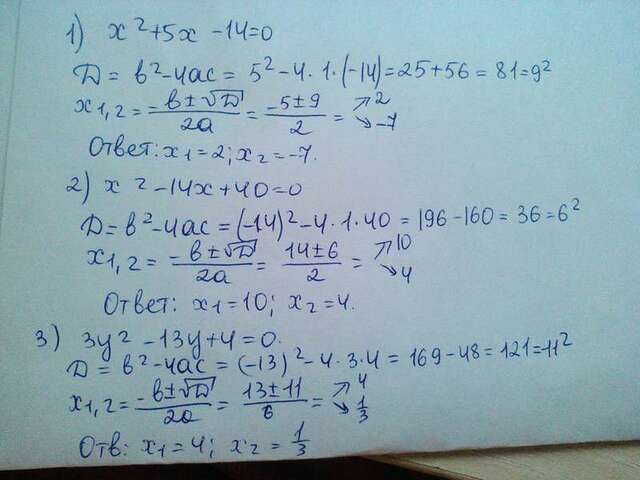 1) x²+5x-14=0
Д = в²-4ас = 5²-4·1·(-14)=25+56=81=9²
x₁,₂ = (-в±√Д)/2а = (-5±9)/2 = ↗2 ↘-7
Ответ: x₁=2; x₂=-7.
2) x²-14x+40=0
Д=в²-4ас=(-14)²-4·1·40=196-160=36=6²
x₁,₂ = (-в±√Д)/2а = (14±6)/2 = ↗10 ↘4
Ответ: x₁=10; x₂=4.
3) 3y²-13y+4=0.
Д = в²-4ас = (-13)²-4·3·4 = 169-48=121=11²
x₁,₂ = (-в±√Д)/2а = (13±11)/6 = ↗4 ↘1/3
Отв: x₁=4; x₂=1/3